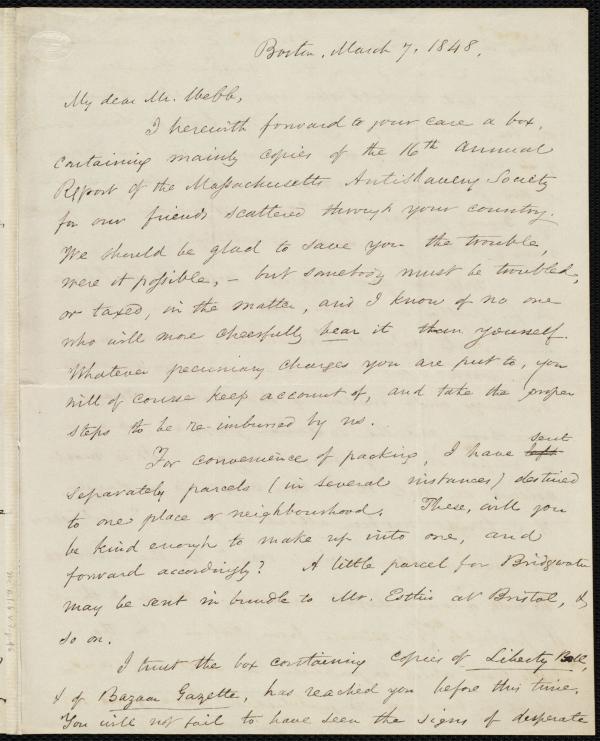 Boston, March 7, 1848.
My dear Mr. Webb,
I herewith forward to your care a box,
containing mainly copies of the 16th Annual
Report of the Massachusetts Antislavery Society
for our friends scattered through your country.
We should be glad to save you the trouble,
were it possible, – but somebody must be troubled,
or taxed, in the matter, and I know of no one
who will more cheerfully bear it than yourself.
Whatever pecuniary charges you are put to, you
will of course keep account of, and take the proper
steps to be re-imbursed by us.
For convenience of packing, I have left sent
separately parcels (in several instances) destined
to one place or neighbourhood. These, will you
be kind enough to make up into one, and
forward accordingly? A little parcel for Bridgwater
may be sent in bundle to Mr. Estlin at Bristol, &
so on.
I trust the box containing copies of Liberty Bell,
& of Bazaar Gazette, has reached you before this time.
You will not fail to have seen the signs of desperate